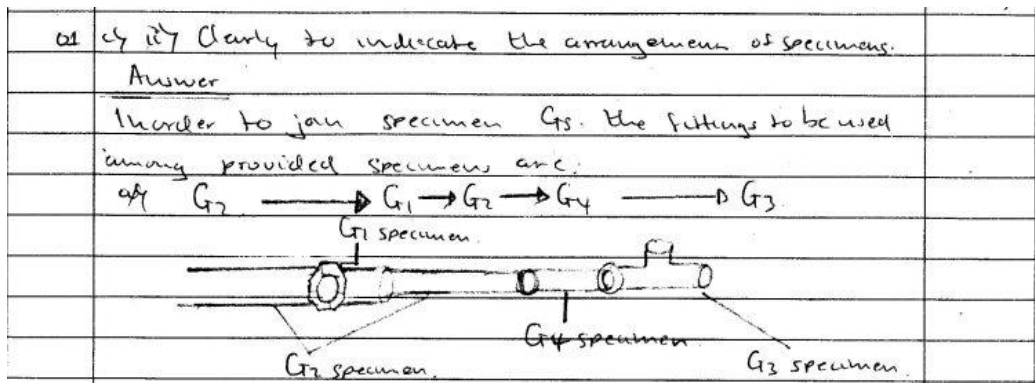 01 c) ii) Clearly to indicate the arrangement of specimens.
Answer
Inorder to join specimen G5. the fittings to be used
among provided specimens are:
G2 → G1 → G2 → G4 → G3
G1 specimen.
G4 specimen
G2 specimen.
G3 specimen.